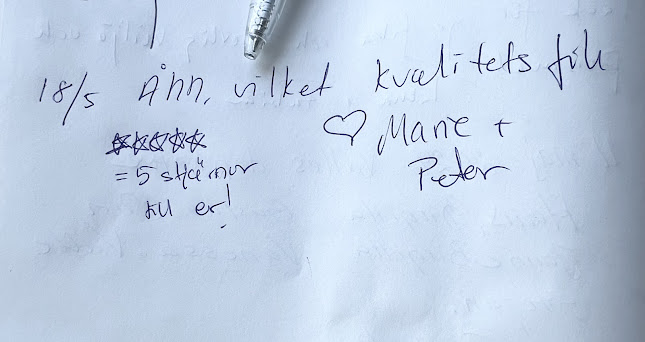 18/5 Åhh, vilket kvalitets fik
♡ Marie +
Peter
☆☆☆☆☆
= 5 stjärnor
till er!